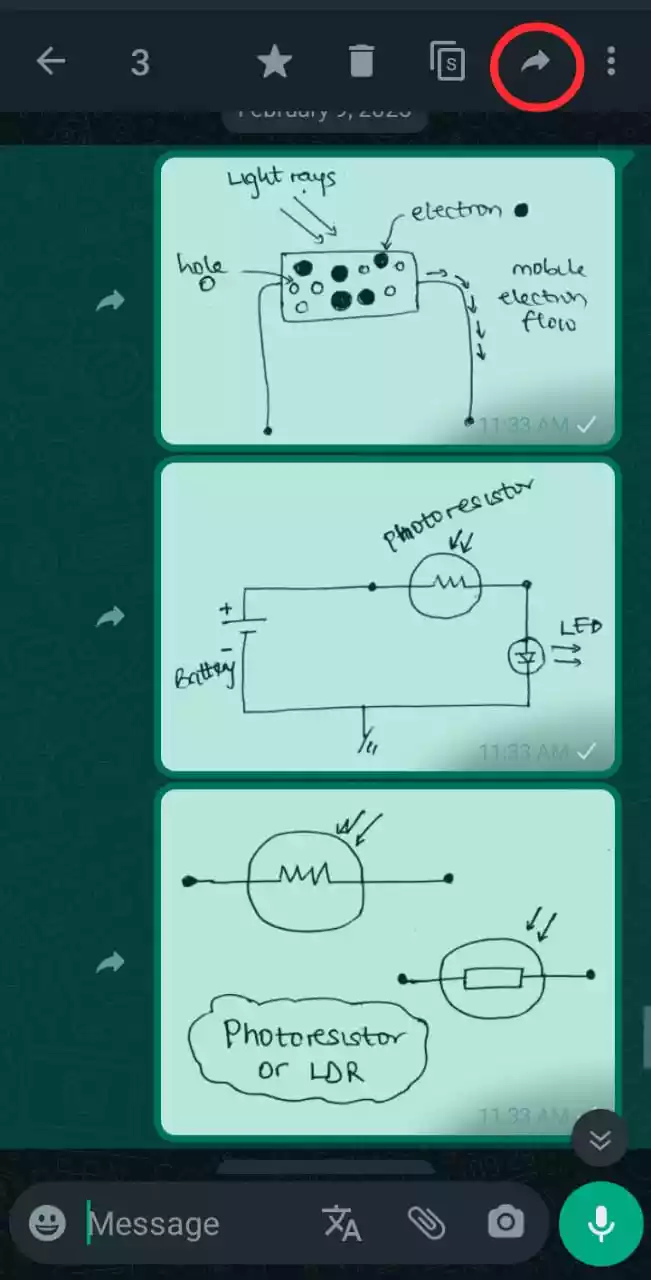 3
S
February 9, 2023
Light rays
electron
hole
mobile
electron
flow
11:33 AM
Photoresistor
+
LED
-
Battery
11:33 AM
Photoresistor
or LDR
11:33 AM
Message
文A